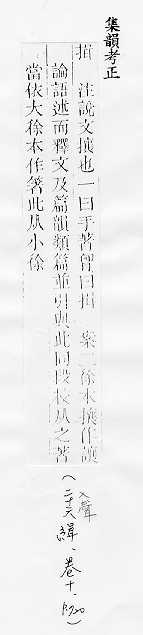 集韻考正
揖　注說文攘也一曰手著胷曰揖　案二徐本攘作讓
論語述而釋文及篇韻類篇並引與此同段校从之著
當依大徐本作箸此从小徐
(入聲
二十六緝、卷十、p20)